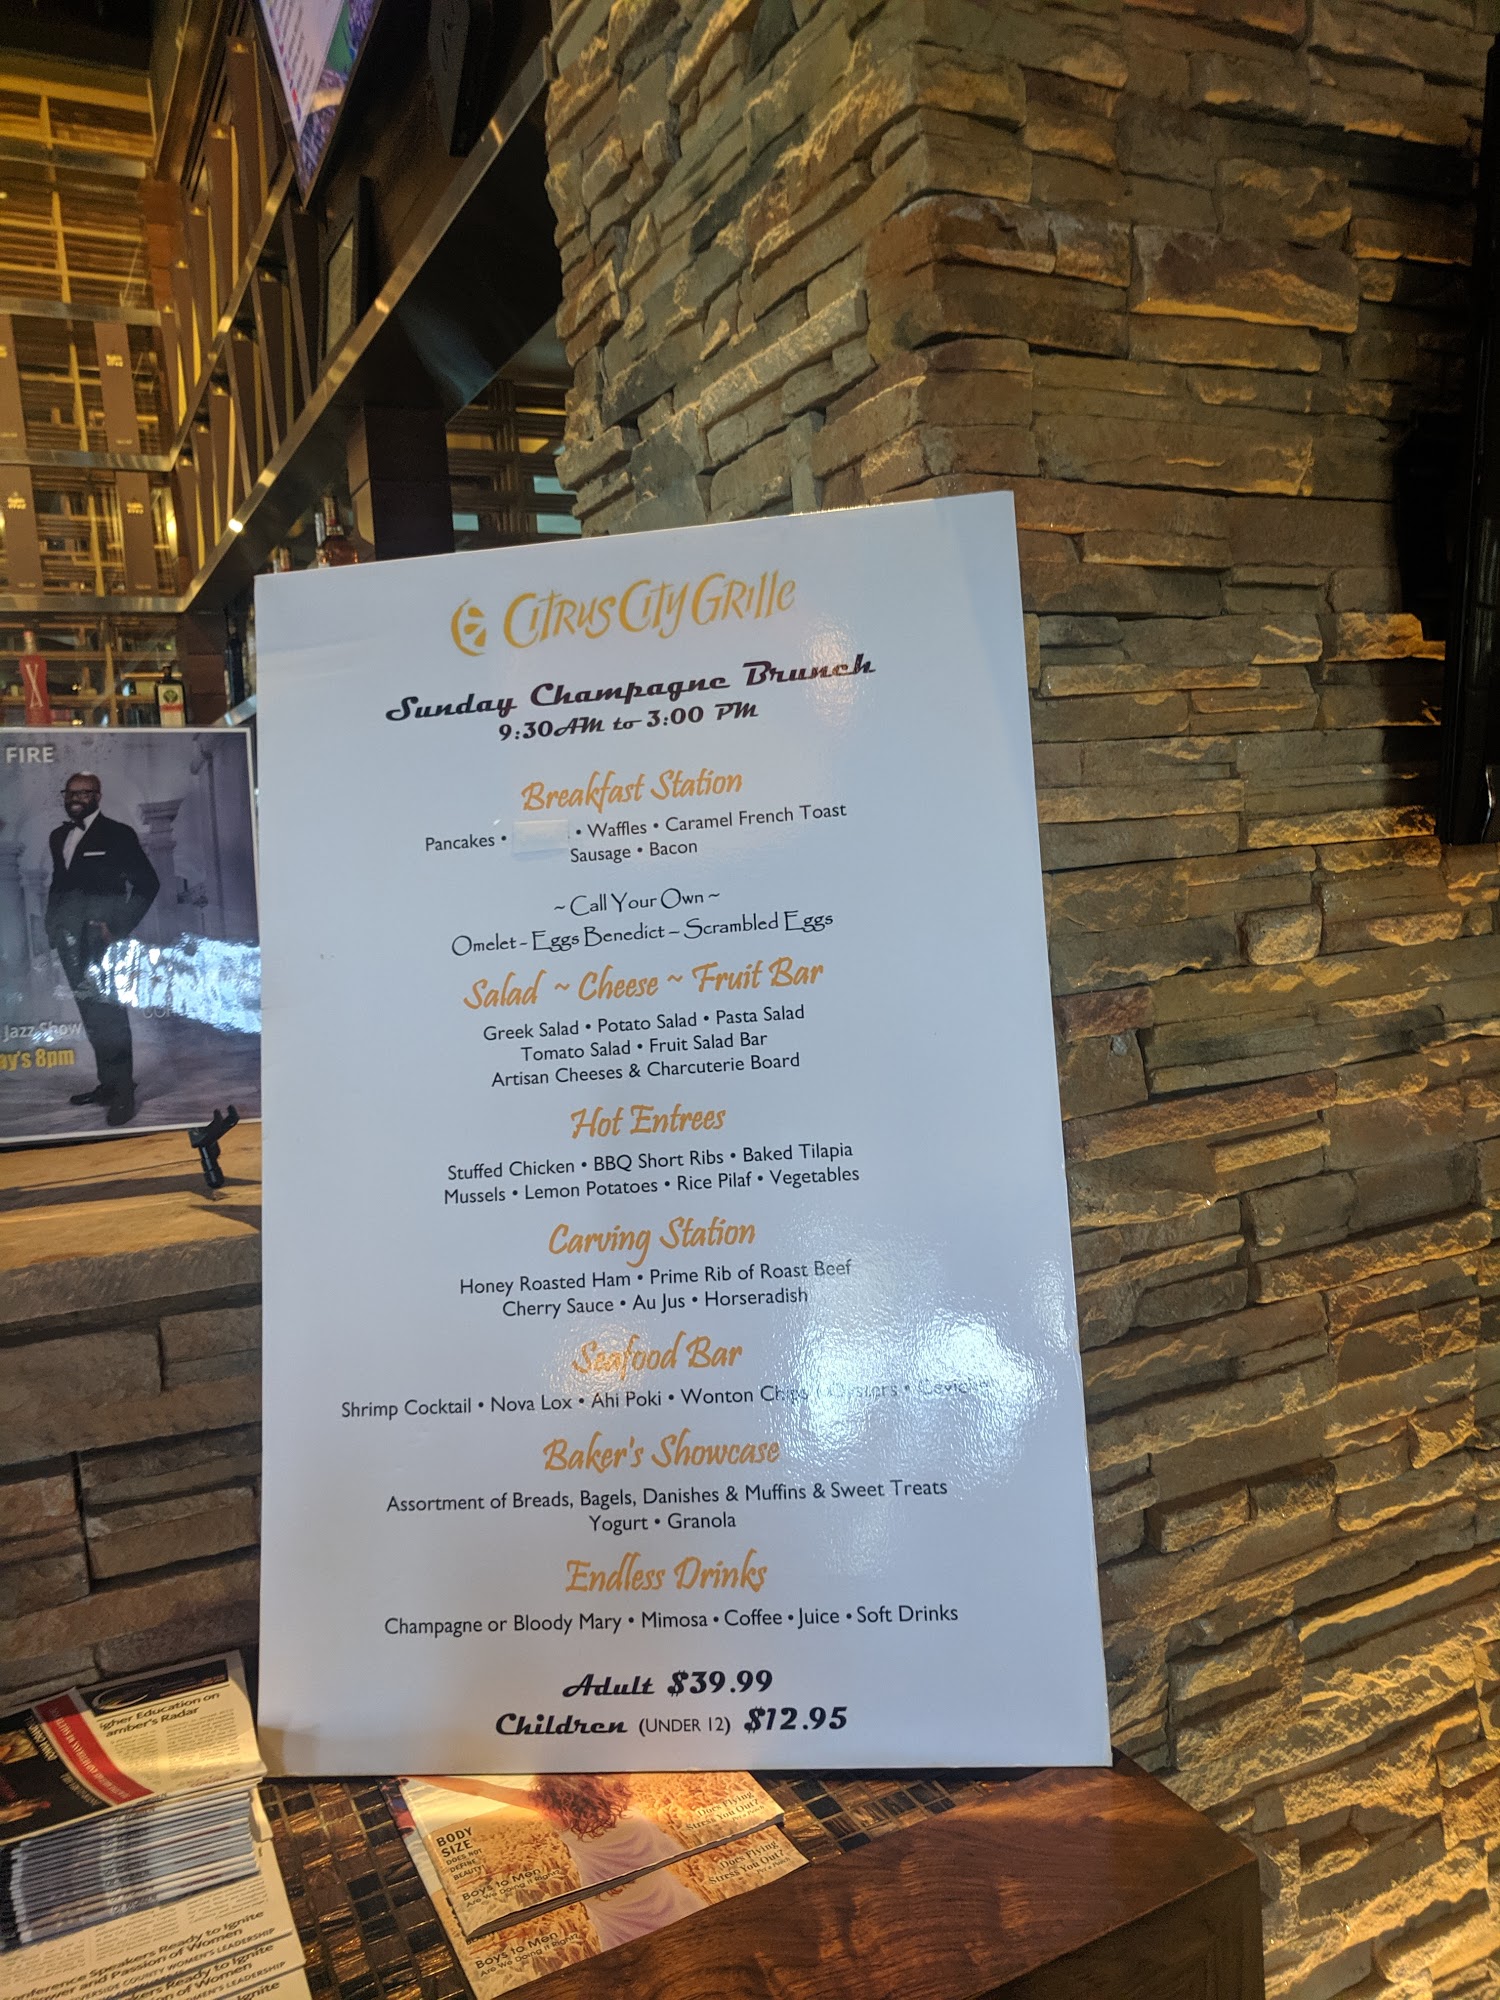 Citrus City Grille
Sunday Champagne Brunch
9:30AM to 3:00 PM
Breakfast Station
Pancakes • • Waffles • Caramel French Toast
Sausage • Bacon
~ Call Your Own ~
Omelet - Eggs Benedict – Scrambled Eggs
Salad ~ Cheese ~ Fruit Bar
Greek Salad • Potato Salad • Pasta Salad
Tomato Salad • Fruit Salad Bar
Artisan Cheeses & Charcuterie Board
Hot Entrees
Stuffed Chicken • BBQ Short Ribs • Baked Tilapia
Mussels • Lemon Potatoes • Rice Pilaf • Vegetables
Carving Station
Honey Roasted Ham • Prime Rib of Roast Beef
Cherry Sauce • Au Jus • Horseradish
Seafood Bar
Shrimp Cocktail • Nova Lox • Ahi Poki • Wonton Chips • Oysters • Ceviche
Baker's Showcase
Assortment of Breads, Bagels, Danishes & Muffins & Sweet Treats
Yogurt • Granola
Endless Drinks
Champagne or Bloody Mary • Mimosa • Coffee • Juice • Soft Drinks
Adult $39.99
Children (UNDER 12) $12.95
FIRE
Jazz Show
ay's 8pm
igher Education on
amber's Radar
onference Speakers Ready to Ignite
ower and Passion of Women
RIVERSIDE COUNTY WOMEN'S LEADERSHIP
kers Ready to Ignite
n of Women
WOMEN'S LEADERSHIP
Ignite
BODY
SIZE
DOES NOT
DEFINE
BEAUTY
Boys to Men
Are We Doing It Right?
Does Flying
Stress You Out?
Does Flying
Stress You Out?
Boys to Men
Are We Doing It Right?